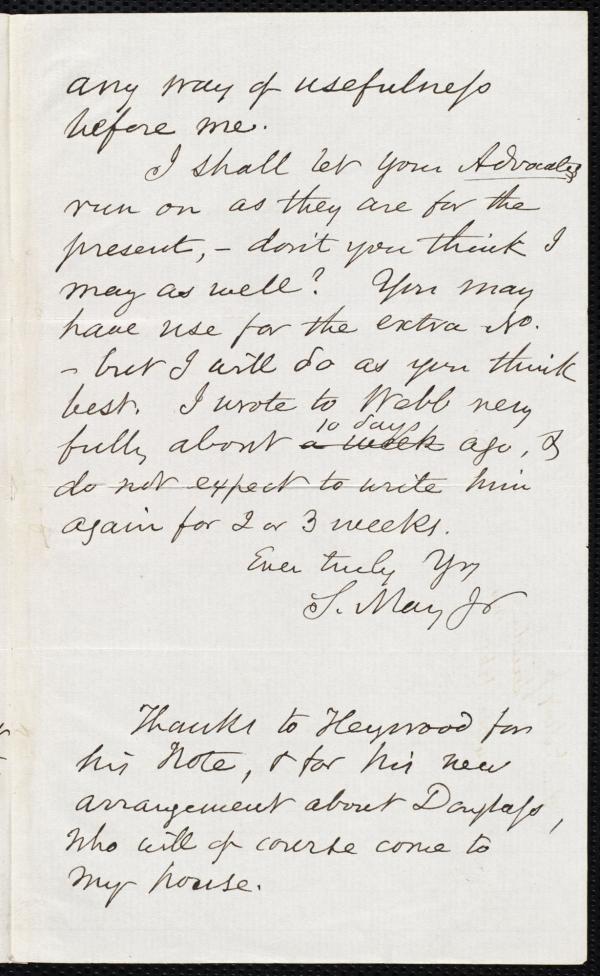 any way of usefulness
before me.
I shall let your Advocates
run on as they are for the
present, – don't you think I
may as well? You may
have use for the extra No.
– but I will do as you think
best. I wrote to Webb very
fully about a week 10 days ago, &
do not expect to write him
again for 2 or 3 weeks.
Ever truly Yrs
S. May Jr
Thanks to Heywood for
his Note, & for his new
arrangement about Douglass,
who will of course come to
my house.